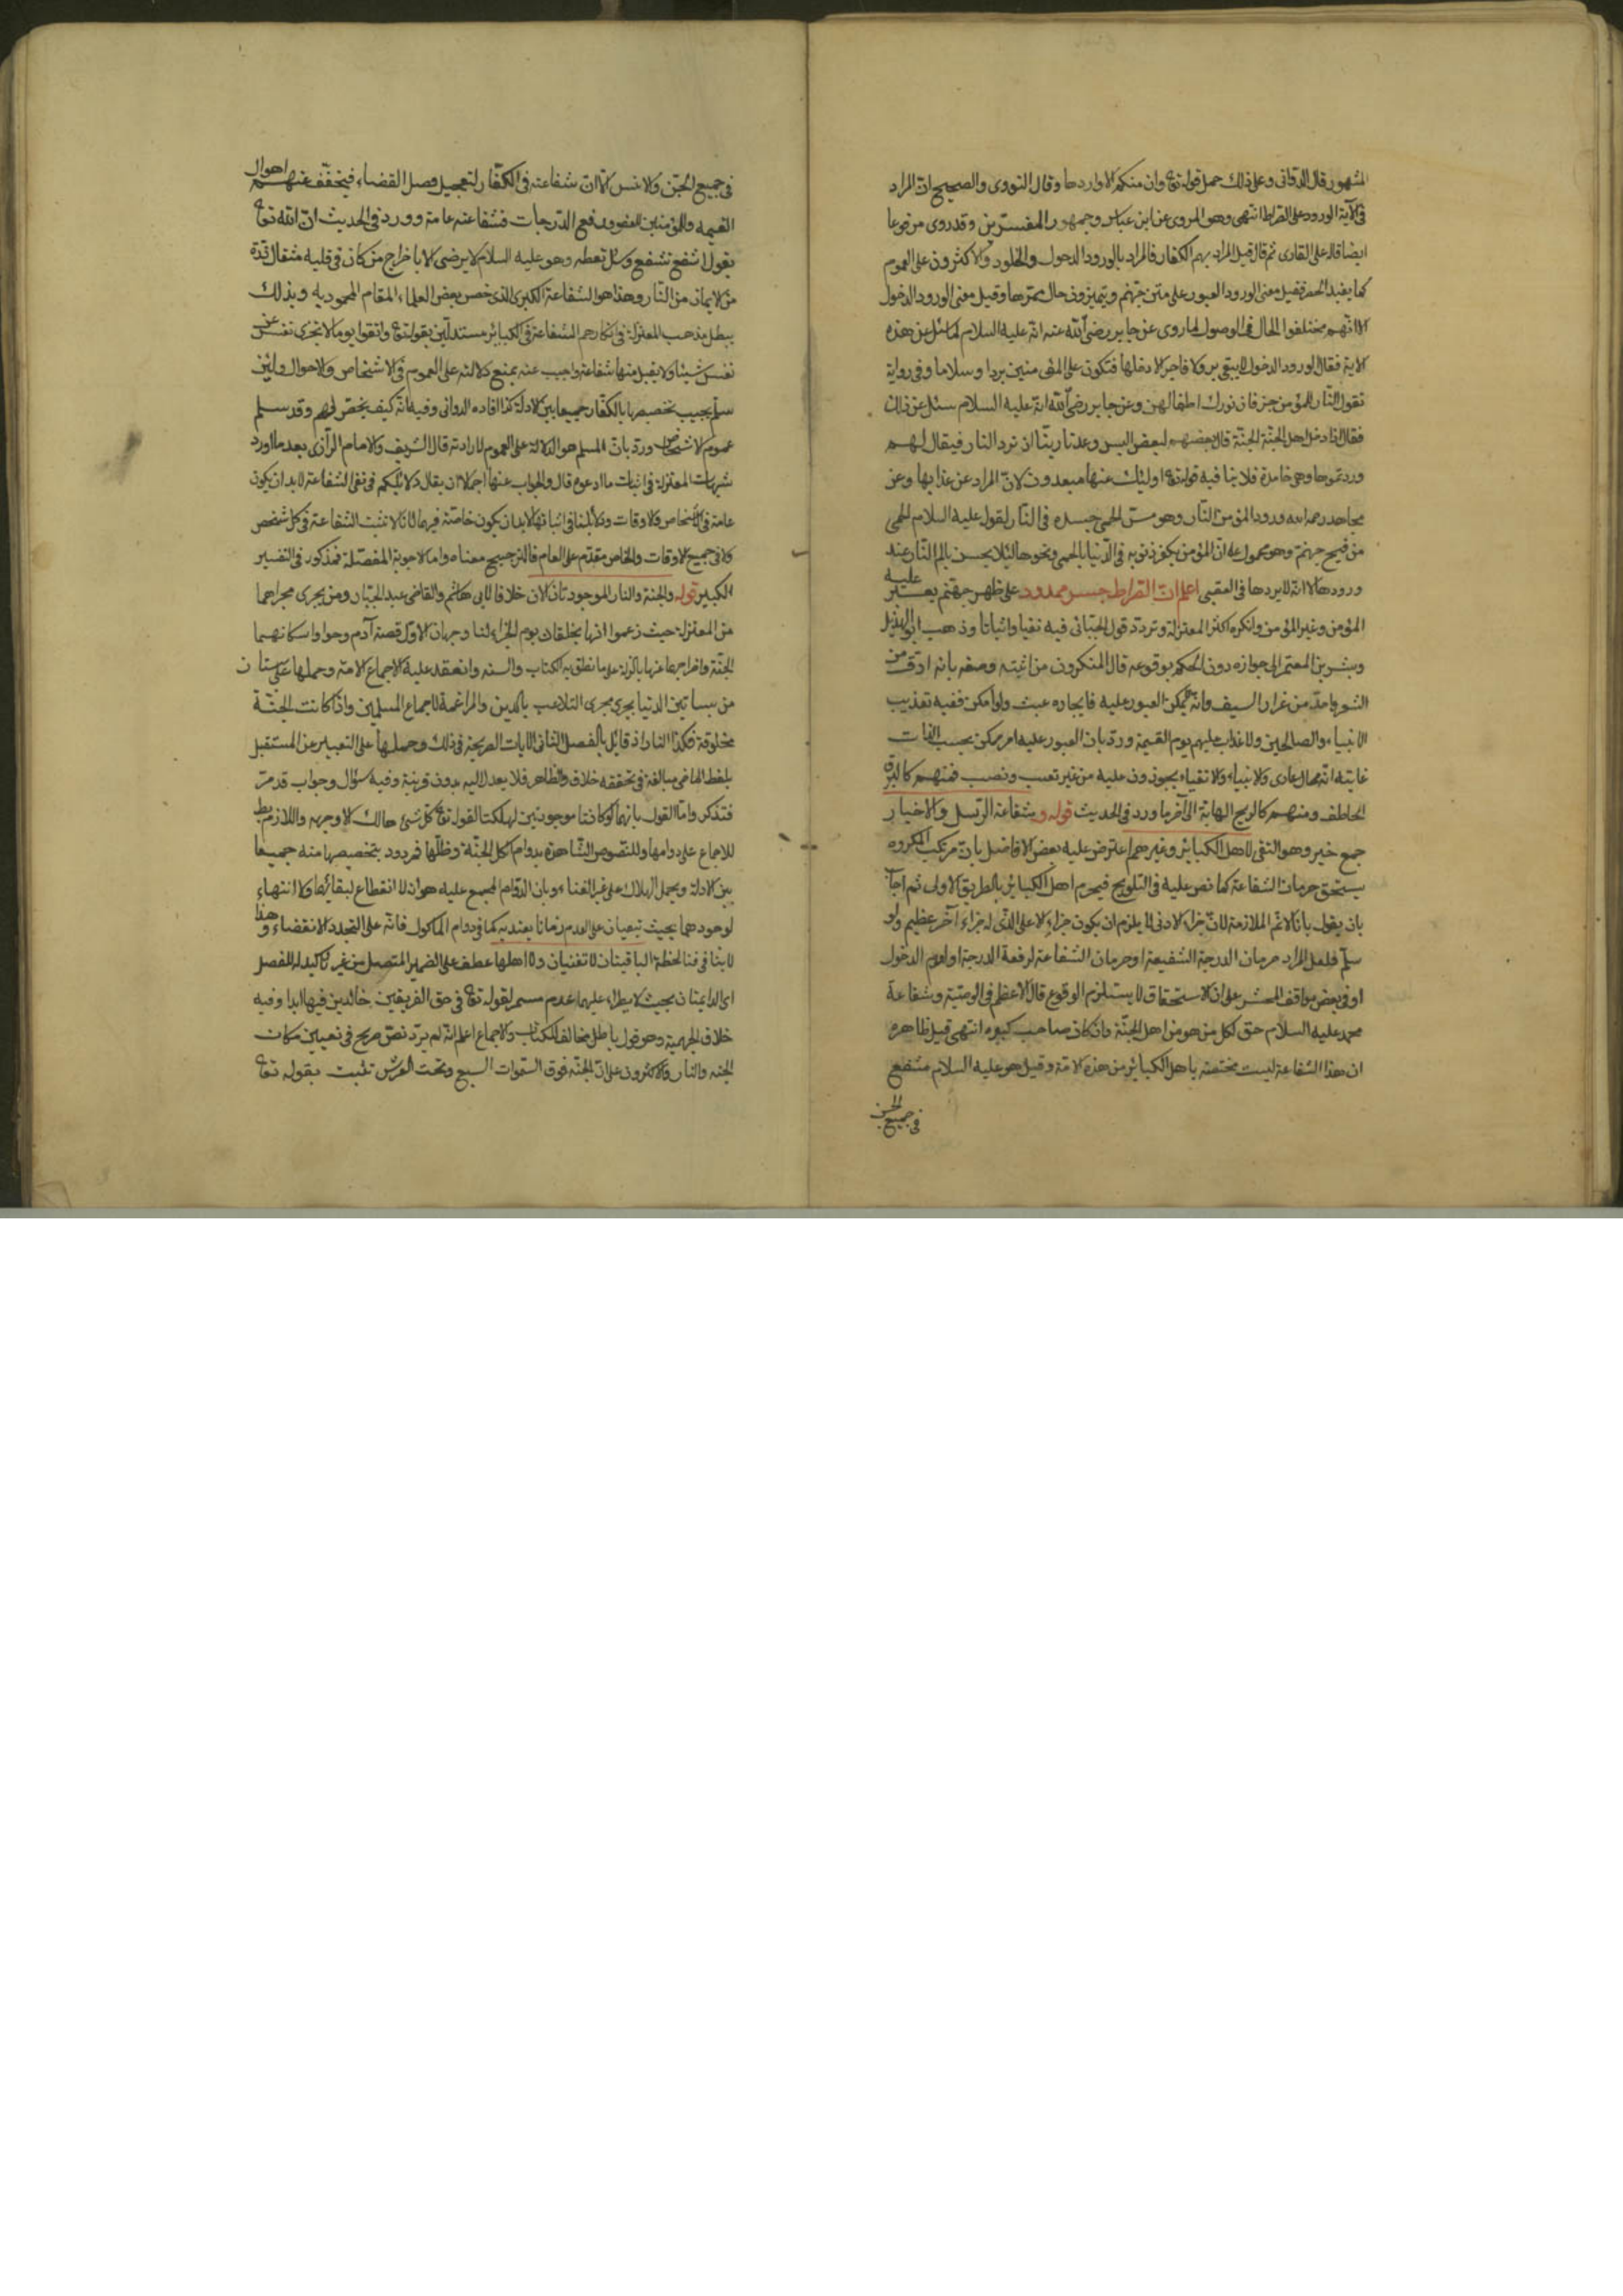 المشهور قال الدوانى وعلى ذلك حمل قوله تع وان منكم الا واردها وقال النووى والصحيح ان المراد
فى الآية الورود على الصراط انتهى وهو المروى عن ابن عباس وجمهور المفسرين وقد روى مرفوعا
ايضا قاله على القارى ثم قال قيل المراد بهم الكفار فالمراد بالورود الدخول والخلود والاكثرون على العموم
كما يفيد الحصر فقيل معنى الورود العبور على متن جهنم ويتميزون حال ممرها وقيل معنى الورود الدخول
الا انهم مختلفوا الحال فى الوصول لما روى عن جابر رضى الله عنه انه عليه السلام لما سئل عن هذه
الاية فقال الورود الدخول لا يبقى بر ولا فاجر الا دخلها فتكون على المؤمنين بردا وسلاما وفى رواية
تقول النار للمؤمن جز فان نورك اطفأ لهبى وعن جابر رضى الله انه عليه السلام سئل عن ذلك
فقال اذا دخل اهل الجنة الجنة قال بعضهم لبعض اليس وعدنا ربنا ان نرد النار فيقال لهم
وردتموها وهى خامدة فلا ينا فيه قوله تع اولئك عنها مبعدون لان المراد عن عذابها وعن
مجاهد رحمه الله ورود المؤمن النار وهو مس الحمى جسده فى النار لقوله عليه السلام الحمى
من فيح جهنم وهو محمول على ان المؤمن يكفر ذنوبه فى الدنيا بالحمى ونحوها لئلا يحس بالم النار عند
ورودها لا انه لا يردها فى العقبى اعلم ان الصراط جسر ممدود على ظهر جهنم يعبر عليه
المؤمن وغير المؤمن وانكره اكثر المعتزلة وتردد قول الجبائى فيه نفيا واثباتا وذهب ابو الهذيل
وبشر بن المعتمر الى جوازه دون الحكم بوقوعه قال المنكرون من اثبته وصفه بانه ادق من
الشعر واحد من غرار السيف وانه لا يمكن العبور عليه فايجاده عبث ولو امكن ففيه تعذيب
الانبياء والصالحين ولا عذاب عليهم يوم القيمة ورد بان العبور عليه امر ممكن بحسب الذات
غايته انه محال عادى والانبياء والاتقياء يجوزون عليه من غير تعب ونصب فمنهم كالبرق
الخاطف ومنهم كالريح الهابة الى آخر ما ورد فى الحديث قوله وشفاعة الرسل والاخيار
جمع خير وهو التقى لاهل الكبائر وغيرهم اعترض عليه بعض الافاضل بان مرتكب المكروه
يستحق حرمان الشفاعة كما نص عليه فى التلويح فيحرم اهل الكبائر بالطريق الاولى ثم اجاب
بان يقول بانا لا نم الملازمة لان جزاء الادنى لا يلزم ان يكون جزاء الاعلى الذى له جزاء آخر عظيم ولو
سلم فلعل المراد حرمان الدرجة الشفيعة او حرمان الشفاعة لرفعة الدرجة او لعدم الدخول
او فى بعض مواقف المحشر على ان الاستحقاق لا يستلزم الوقوع قال الاعظم فى الوصية وشفاعة
محمد عليه السلام حق لكل من هو من اهل الجنة وان كان صاحب كبيرة انتهى قيل ظاهره
ان هذا الشفاعة ليست مختصة باهل الكبائر من هذه الامة وقيل هو عليه السلام مشفع
فى جميع الجن
فى جميع الجن والانس الا ان شفاعته فى الكفار لتعجيل فصل القضاء فيخفف عنهم اهوال
القيمه والمؤمنين بالعفو ورفع الدرجات فشفاعته عامة وورد فى الحديث ان الله تع
يقول اشفع تشفع وسل تعطه وهو عليه السلام لا يرضى الا باخراج من كان فى قلبه مثقال ذرة
من الايمان من النار وهذا هو الشفاعة الكبرى الذى خص بعض العلماء المقام المحمود به وبذلك
يبطل مذهب المعتزلة فى انكارهم الشفاعة فى الكبائر مستدلين بقوله تع واتقوا يوما لا تجزى نفس عن
نفس شيئا ولا يقبل منها شفاعة واجيب عنه بمنع دلالته على العموم فى الاشخاص والاحوال ولئن
سلم يجيب تخصيصها بالكفار جمعا بين الادلة كذا افاده الدوانى وفيه انه كيف يخص لهم وقد سلم
عموم الاشخاص ورد بان المسلم هو الدلالة على العموم لا ارادته قال الشريف والامام الرازى بعد ما اورد
شبهات المعتزلة فى اثبات ما ادعوه قال والجواب عنها اجمالا ان يقال دلائلكم فى نفى الشفاعة لا بد ان يكون
عامة فى الاشخاص والاوقات ودلائلنا فى اثباتها لا بد ان يكون خاصة فيهما لانا لا نثبت الشفاعة فى كل شخص
ولا فى جميع الاوقات والخاص مقدم على العام فالترجيح معنا واما الاجوبة المفصلة فمذكور فى التفسير
الكبير قوله والجنة والنار الموجودتان الان خلافا لابى هاشم والقاضى عبد الجبار ومن يجرى مجراهما
من المعتزلة حيث زعموا انها يخلقان يوم الجزاء لنا وجهان الاول قصة آدم وحواء واسكانهما
الجنة واخراجهما عنها بالزلة على ما نطق به الكتاب والسنه وانعقد عليه الاجماع الامة وحملها على بستان
من بساتين الدنيا يجرى مجرى التلاعب بالدين والمراغمة لاجماع المسلمين واذا كانت الجنة
مخلوقة فكذا النار اذ قائل بالفصل الثانى الايات الصريحة فى ذلك وحملها على التعبير عن المستقبل
بلفظ الماضى مبالغة فى تحققه خلاف الظاهر فلا يعدل اليه بدون قرينة وفيه سؤال وجواب قد مر
فتذكر واما القول بانهما لو كانتا موجودتين لهلكتا لقوله تع كل شئ هالك الا وجهه واللازم بط
للاجماع على دوامها وللنصوص الشاهدة بدوام اكل الجنة وظلها فمردود بتخصيصها منه جمعا
بين الادلة ويحمل الهلاك على غير الفناء وبان الدوام المجمع عليه هو ان لا انقطاع لبقائهما ولا انتهاء
لوجودهما بحيث تبقيان على العدم زمانا يعتد به كما فى دوام الماكول فانه على التجدد الانقضاء وهذا
لا ينافى فنا لحظة الباقيتان لا تفنيان ولا اهلها عطف على الضمير المتصل من غير تاكيد للفصل
اى الدائمتان بحيث لا يطرأ عليهما عدم مستمر لقوله تع فى حق الفريقين خالدين فيها ابدا وفيه
خلاف الجهمية وهو قول باطل مخالف للكتاب والاجماع اعلم انه لم يرد نص صريح فى تعيين مكان
الجنه والنار والاكثرون على ان الجنة فوق السموات السبع وتحت العرش تثبت بقوله تع